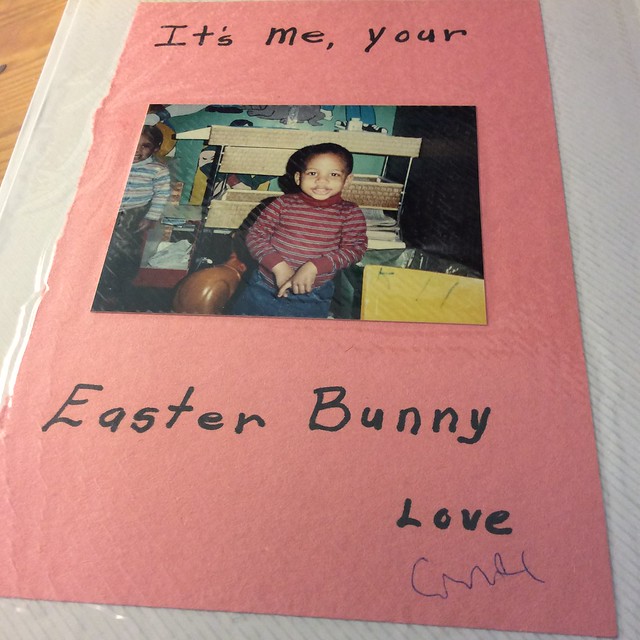 It's me, your
Easter Bunny
Love